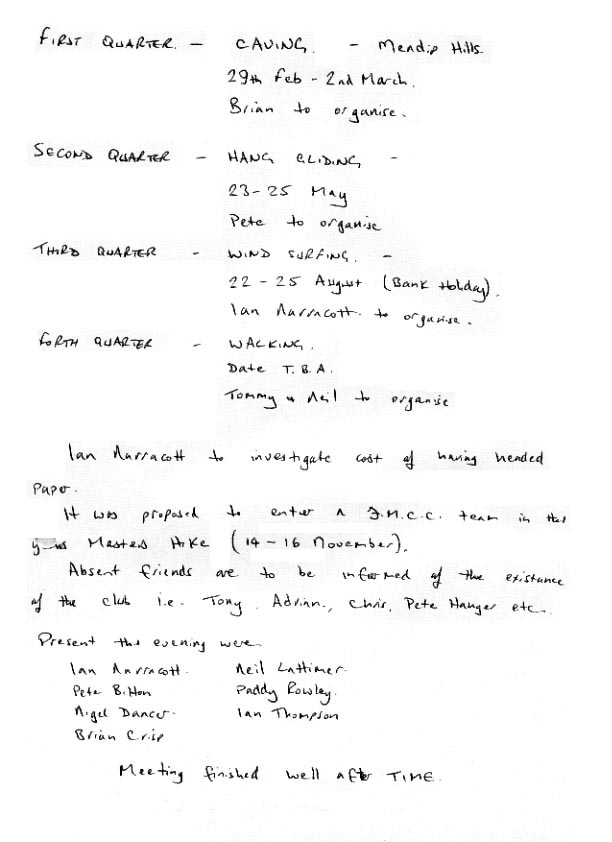 FIRST QUARTER. - CAVING. - Mendip Hills.
29th Feb - 2nd March.
Brian to organise.
SECOND QUARTER - HANG GLIDING -
23-25 May
Pete to organise
THIRD QUARTER - WIND SURFING. -
22 - 25 August (Bank Holiday).
Ian Narracott. to organise.
FORTH QUARTER - WALKING.
Date T.B.A.
Tommy & Neil to organise
Ian Narracott to investigate cost of having headed
Paper.
It was proposed to enter a J.M.C.C. team in this
years Masters Hike (14 - 16 November).
Absent friends are to be informed of the existance
of the club i.e. Tony, Adrian., Chris, Pete Hanger etc..
Present this evening were.
Ian Narracott. Neil Lattimer.
Pete Bitton Paddy Rowley.
Nigel Dancer. Ian Thompson
Brian Crisp
Meeting finished well after TIME.